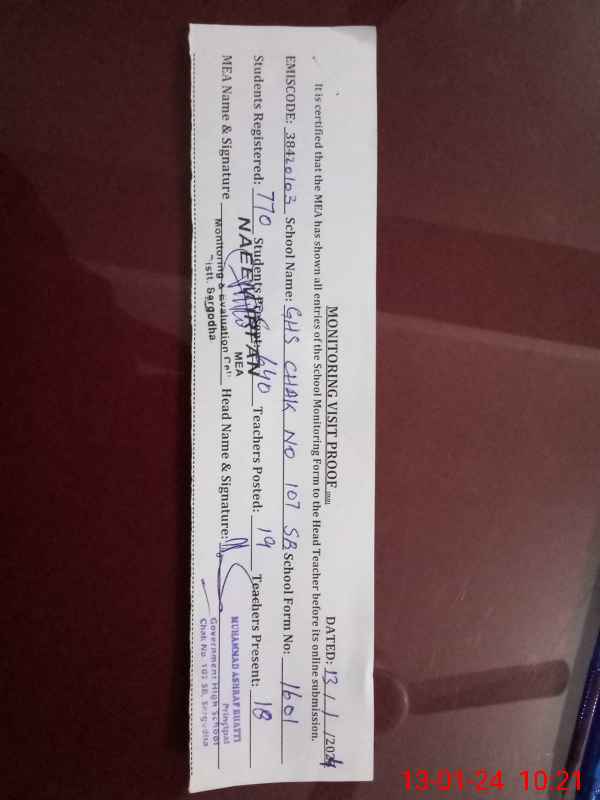 MONITORING VISIT PROOF
DATED: 13 / 1 /2024
It is certified that the MEA has shown all entries of the School Monitoring Form to the Head Teacher before its online submission.
EMISCODE: 38420103 School Name: GHS CHAK NO 107 SB School Form No: 1601
Students Registered: 770 Students Present: 640 Teachers Posted: 19 Teachers Present: 18
NAEEM IRFAN
MEA
MEA Name & Signature Monitoring & Evaluation Cell Head Name & Signature:
Distt. Sargodha
MUHAMMAD ASHRAF BHATTI
Principal
Government High School
Chak No. 107 SB, Sargodha
13-01-24 10:21